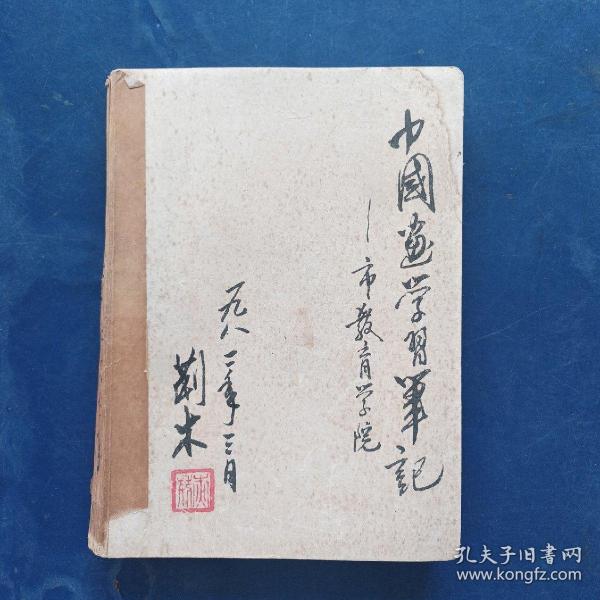 中國画学習筆記
—市教育学院
一九八二年三月
荆木
孔夫子旧书网
www.kongfz.com